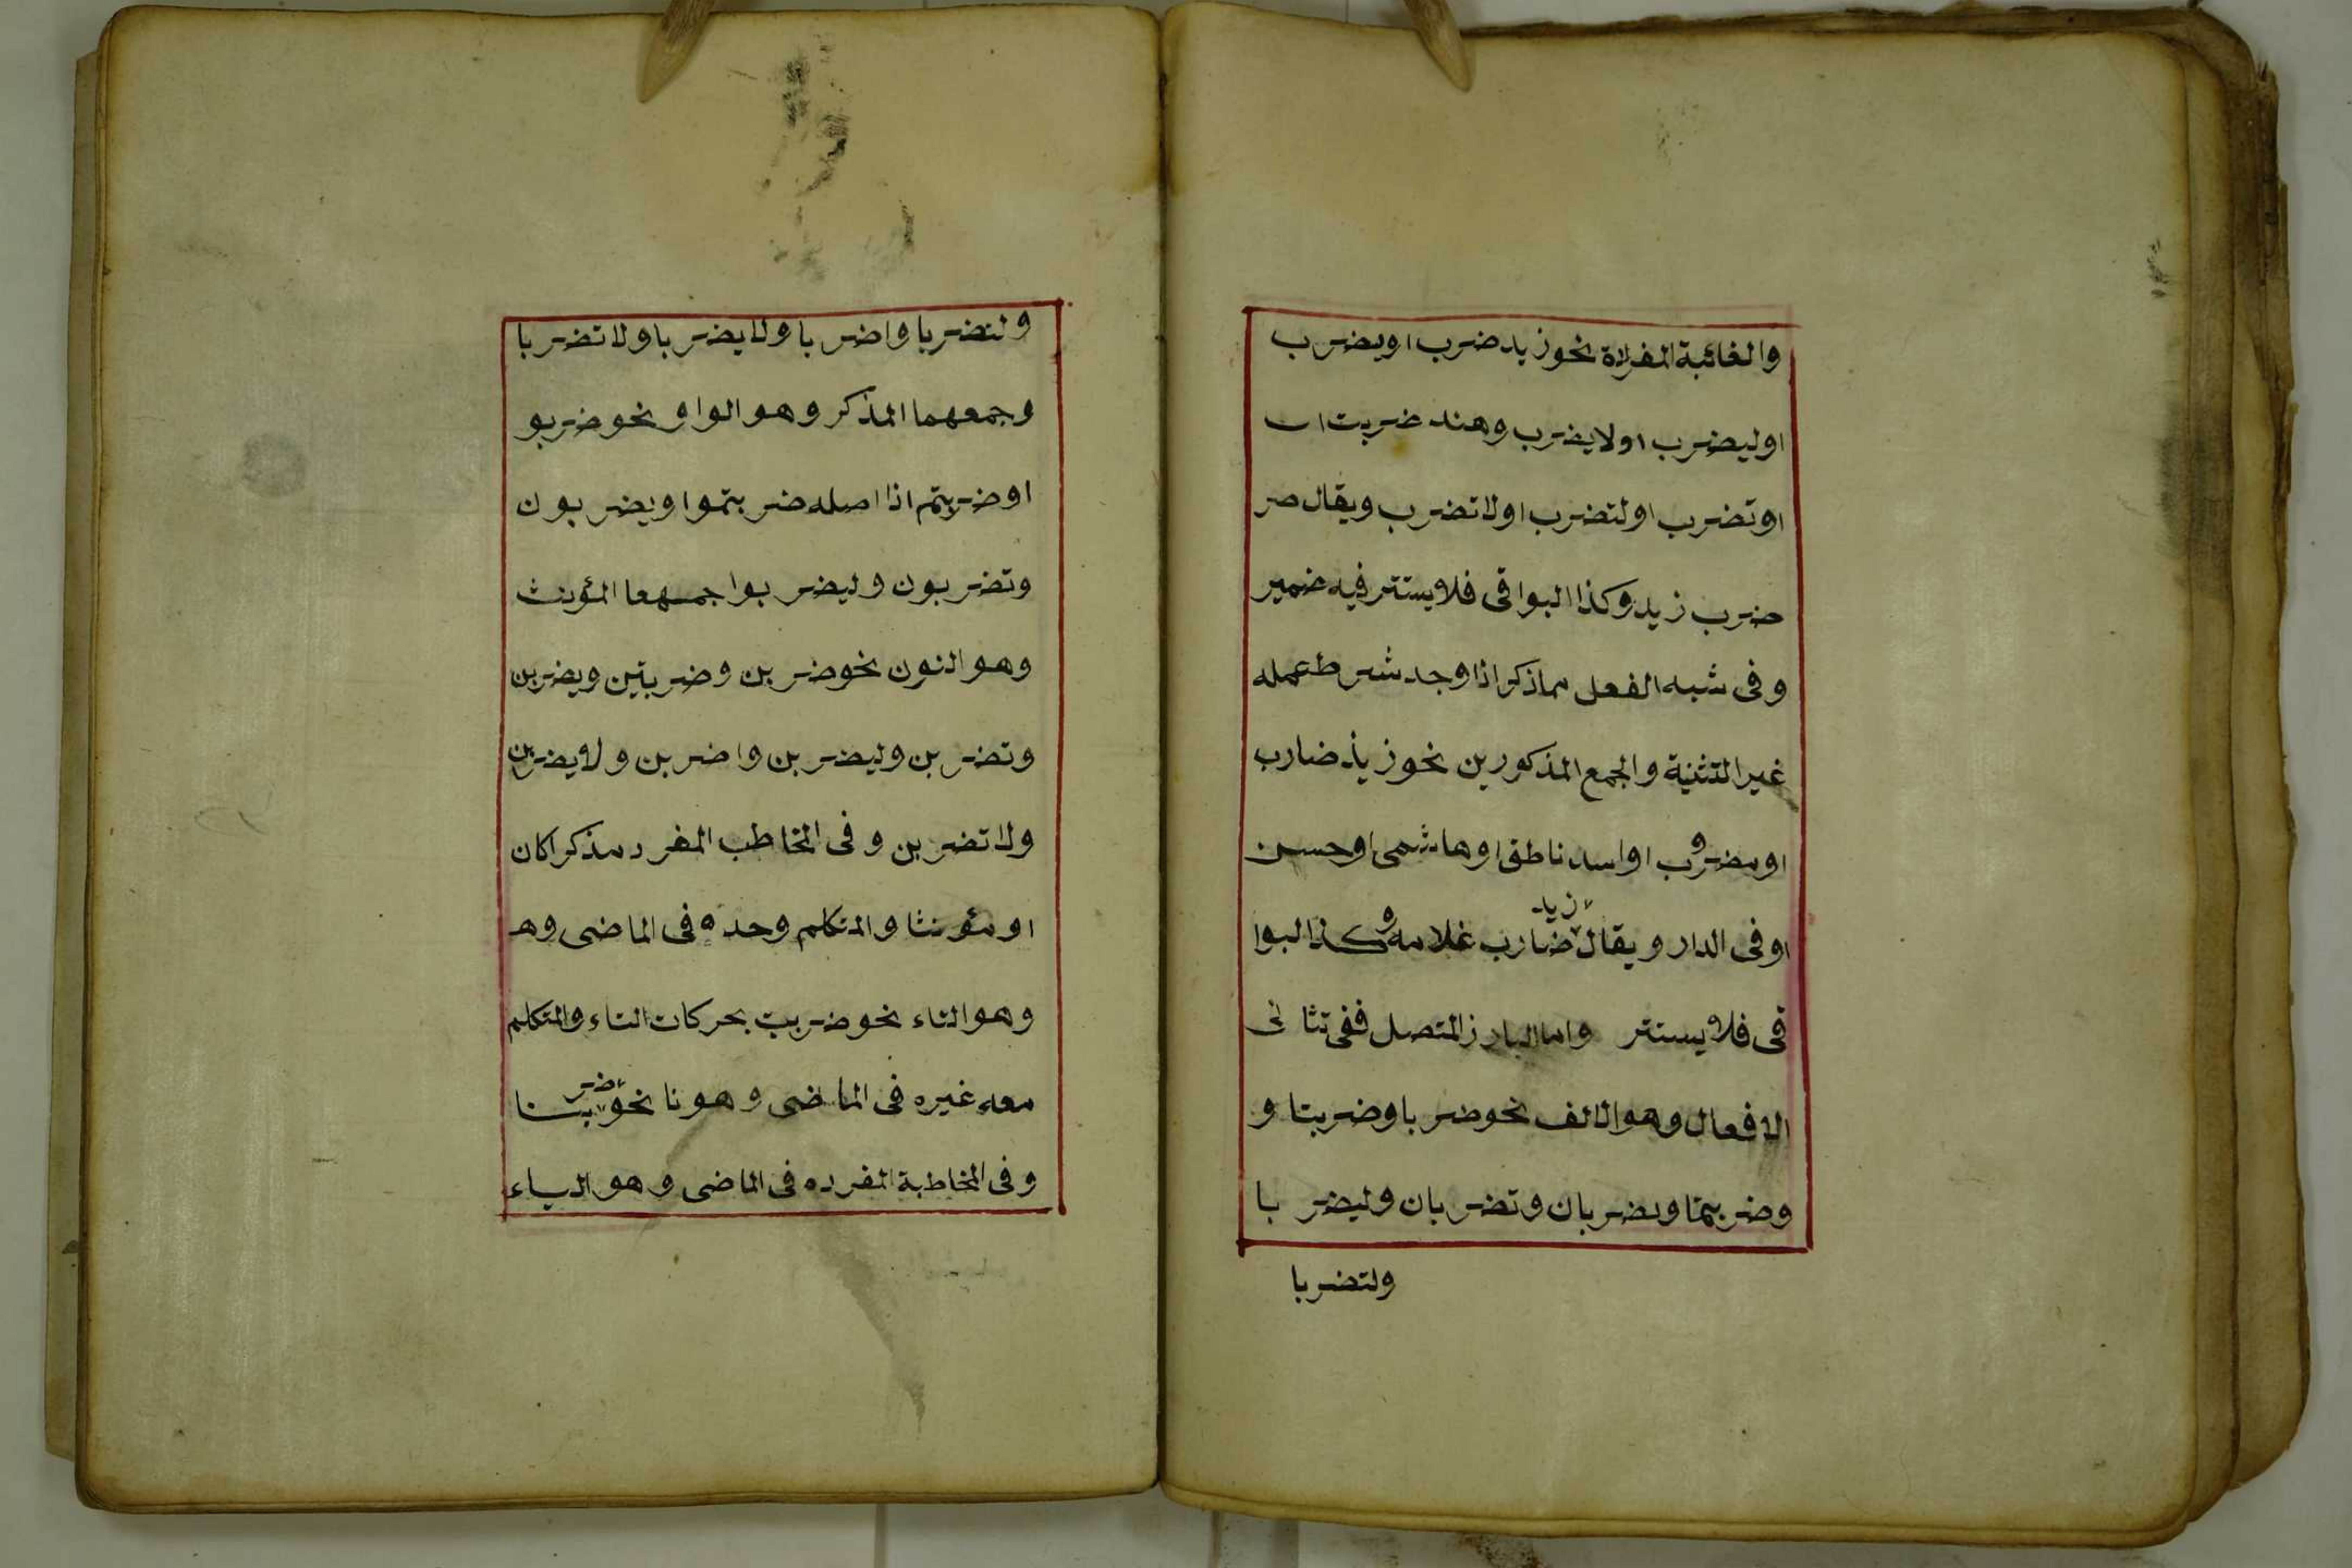 والغائبة المفردة نحو زيد ضرب اويضرب
اوليضرب اولايضرب وهند ضربت ا
اوتضرب اولتضرب اولاتضرب ويقال صر
ضرب زيد وكذا البواقى فلا يستتر فيه ضمير
وفى شبه الفعل مماذكر اذا وجد شرط عمله
غير التثنية والجمع المذكورين نحو زيد ضارب
اومضروب اواسد ناطق اوهاشمى اوحسن
اوفى الدار ويقال زيد ضارب غلامه وكذا البوا
قى فلا يستتر واما البارز المتصل ففى تثانى
الافعال وهو الالف نحو ضربا وضربتا و
وضربتما ويضربان وتضربان وليضربا
ولتضربا
ولتضربا واضربا ولايضربا ولاتضربا
وجمعهما المذكر وهو الواو نحو ضربو
اوضربتم اذا اصله ضربتموا ويضربون
وتضربون وليضربوا جمعهما المؤنث
وهو النون نحو ضربن وضربتين ويضربن
وتضربن وليضربن واضربن ولايضربن
ولاتضربن وفى المخاطب المفرد مذكرا كان
اومؤنثا والمتكلم وحده فى الماضى وهـ
وهو التاء نحو ضربت بحركات التاء والمتكلم
معه غيره فى الماضى وهو نا نحو ضربنا
وفى المخاطبة المفرده فى الماضى وهو الياء